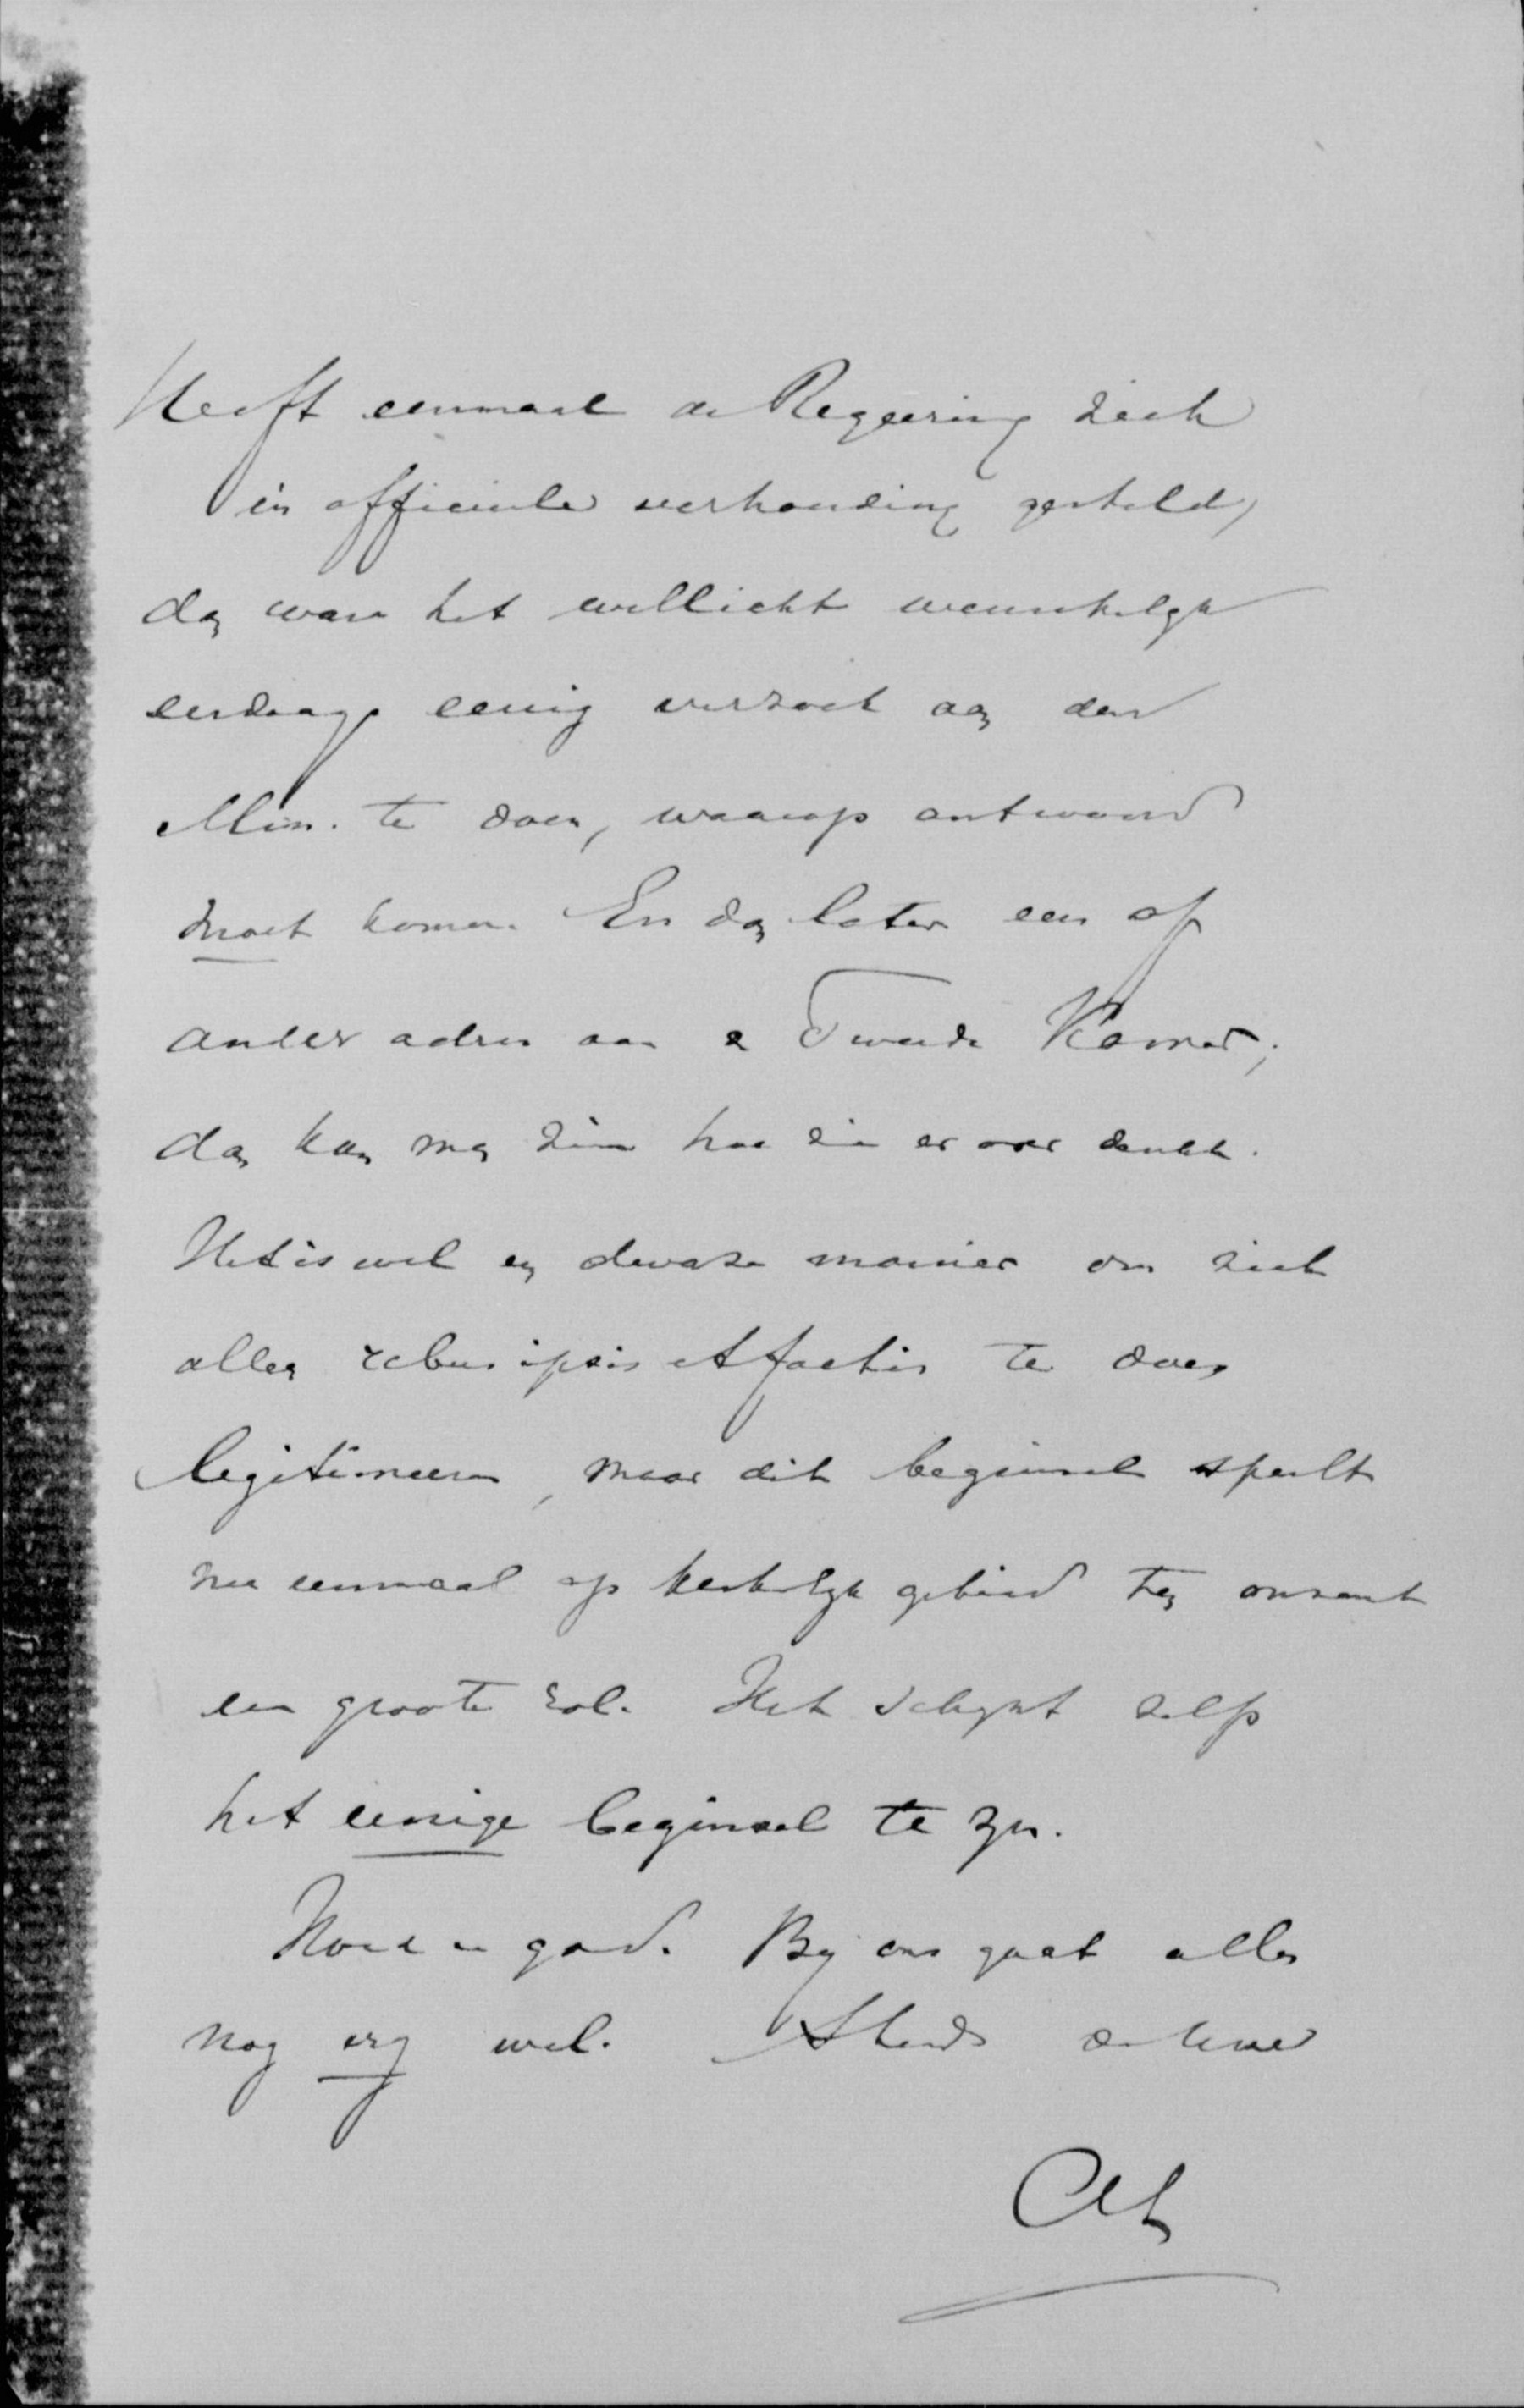 Heeft eenmaal de Regeering zich
in officieele verhouding gesteld,
dan ware het wellicht wenschelijk
eerdaags eenig verzoek aan den
Min. te doen, waarop antwoord
moet komen. En dan later een of
ander adres aan de Tweede Kamer;
dan kan men zien hoe die er over denkt.
Het is wel een dwaze manier om zich
alleen rebus ipsis et factis te doen
legitimeeren, maar dit beginsel speelt
nu eenmaal op kerkelijk gebied ten onzent
een groote rol. Het schijnt zelfs
het eenige beginsel te zijn.
Houd u goed. Bij ons gaat alles
nog erg wel. Steeds de Uwe